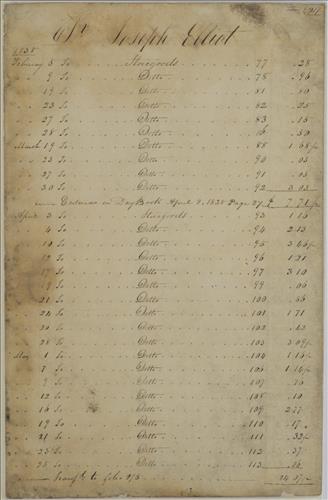 Dr Joseph Elliot
1838
February 5 To Storegoods 77 .28
9 To Ditto 78 .96
19 To Ditto 81 .80
23 To Ditto 82 .25
27 To Ditto 83 .15
28 To Ditto 86 .50
March 19 To Ditto 88 1 68
23 To Ditto 90 .05
27 To Ditto 91 .05
30 To Ditto 92 3 03
Entered in Day Book April 2, 1838 Page
April 3 To Storegoods 93 1 16
4 To Ditto 94 2 13
10 To Ditto 95 3 46
12 To Ditto 96 1 21
17 To Ditto 97 3 10
19 To Ditto 99 .06
21 To Ditto 100 .56
24 To Ditto 101 1 71
To Ditto 102
28 To Ditto 103 3 09
May 1 To Ditto 104 1 16
7 To Ditto 106
9 To Ditto 107
12 To Ditto 108 .10
16 To Ditto 109 2 27
19 To Ditto 110 .17
21 To Ditto 111 .32
25 To Ditto 112 .37
25 To Ditto 113
to folio